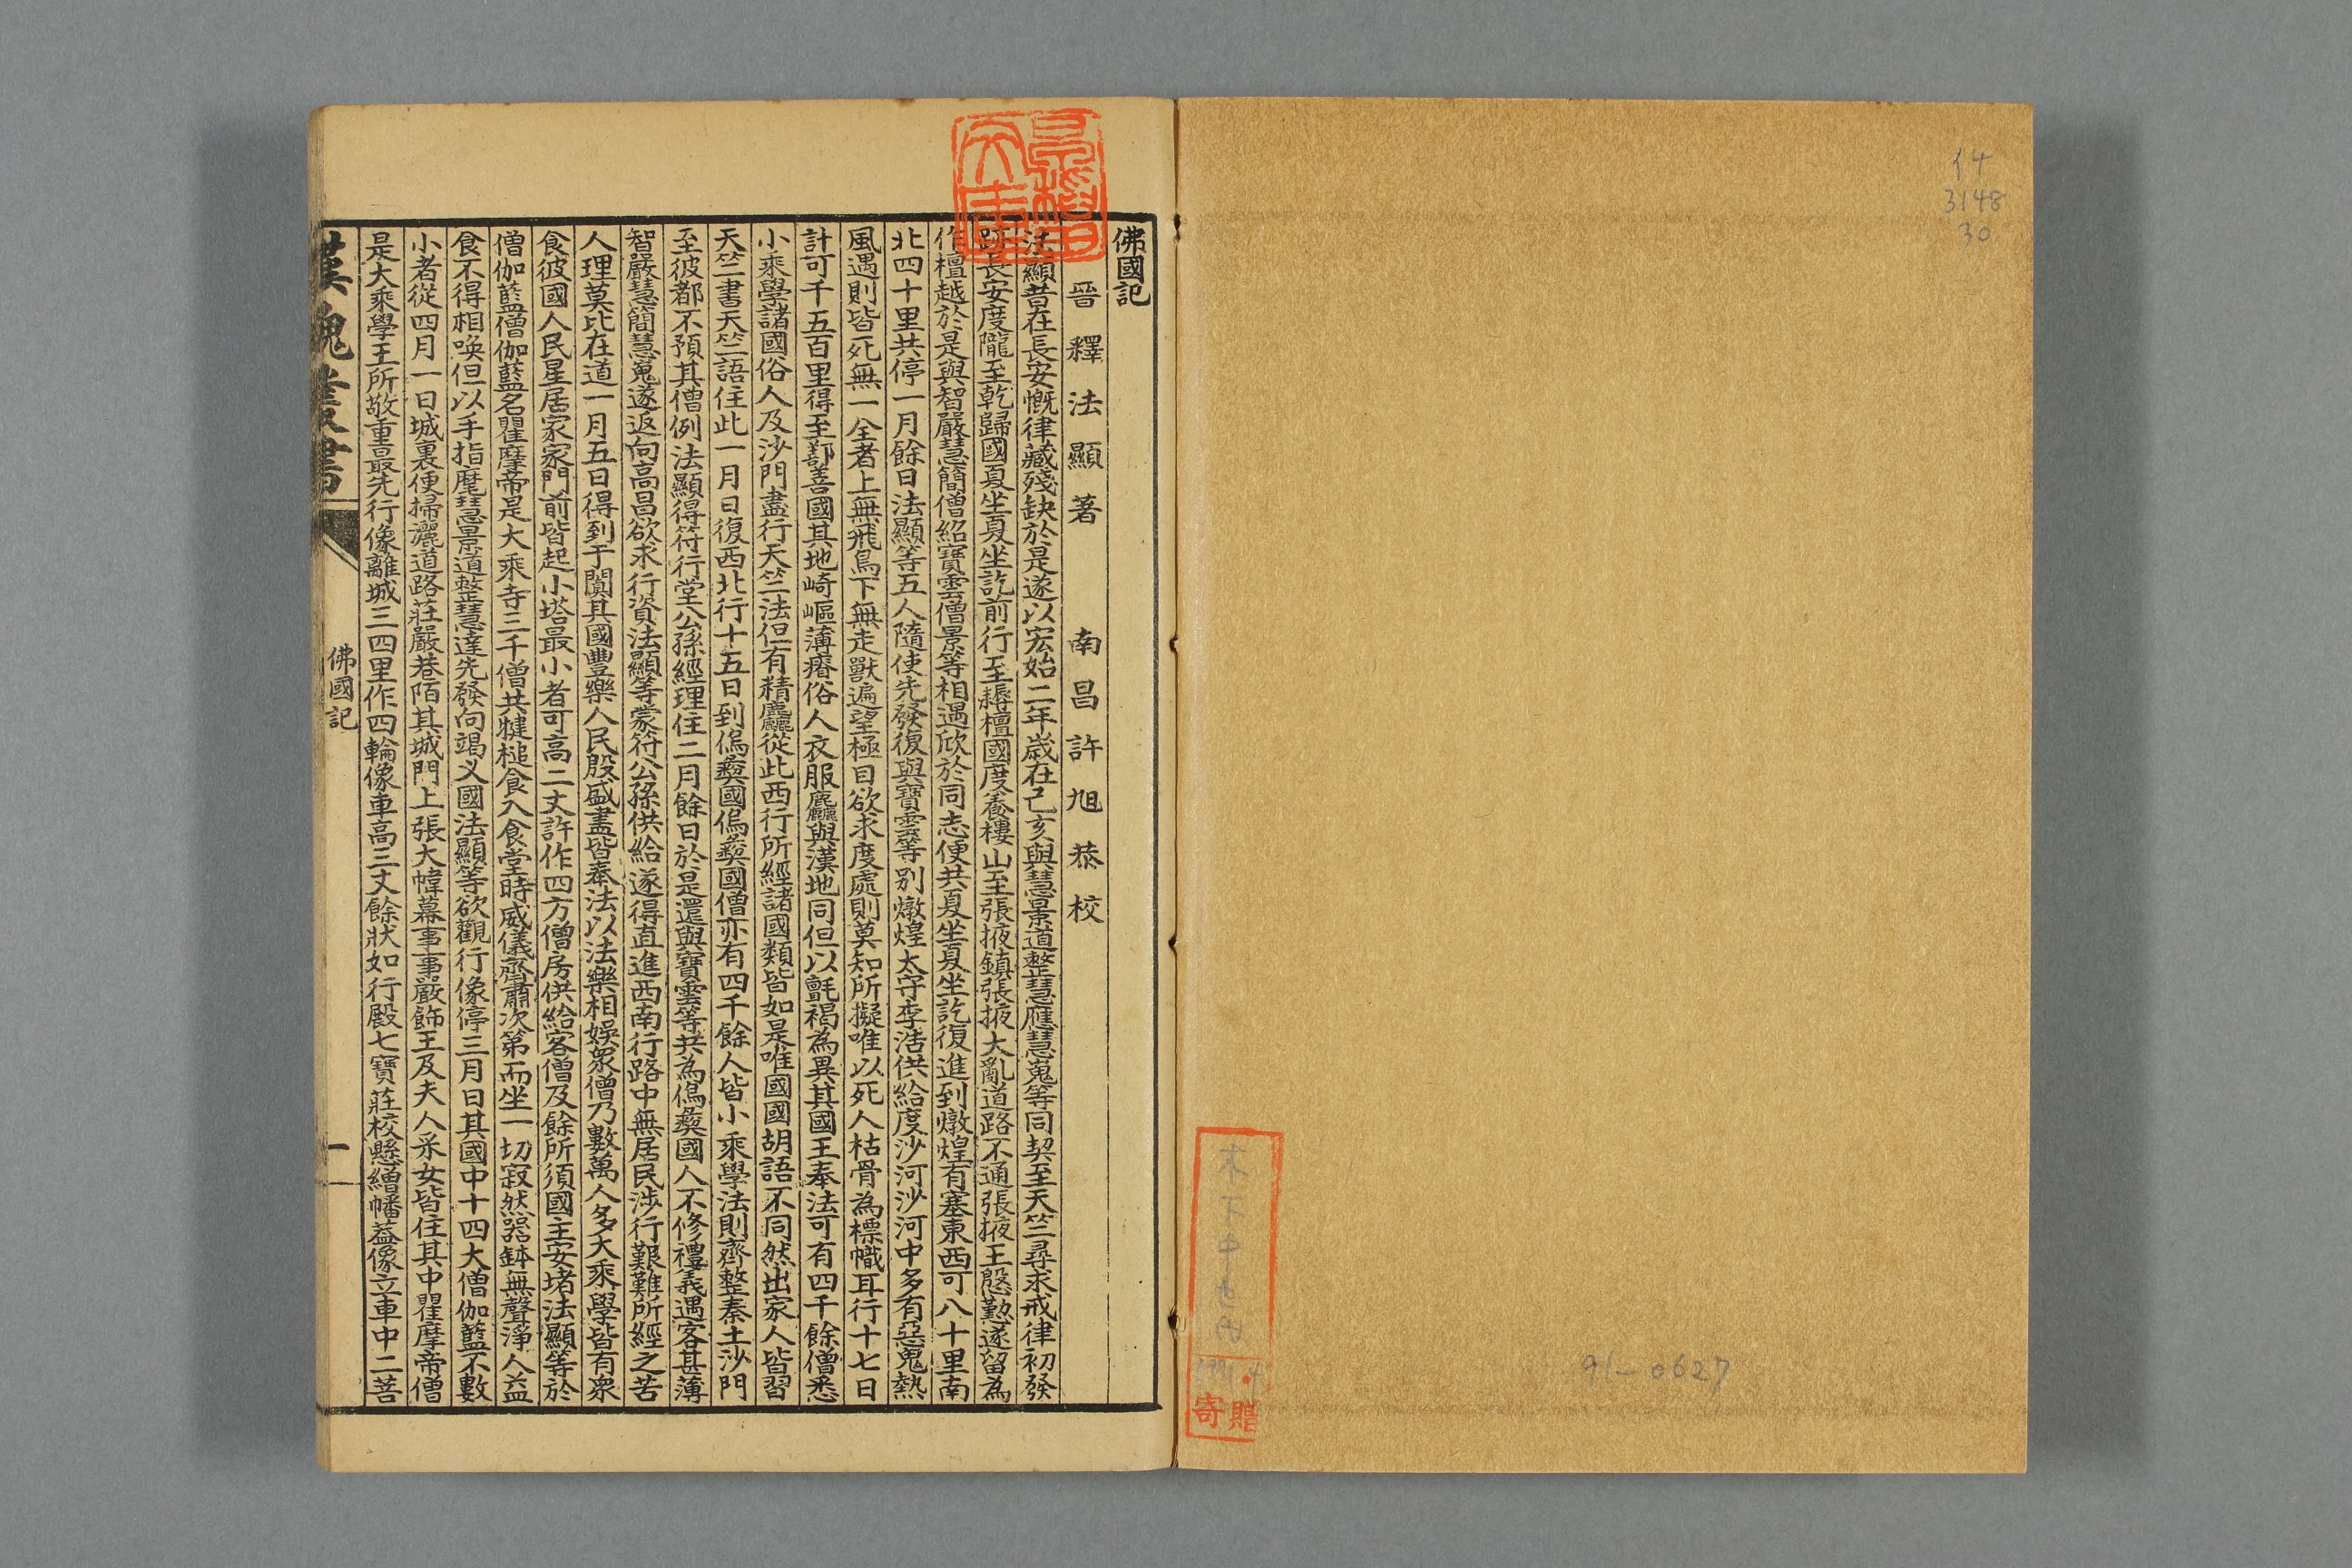 佛國記
晉釋法顯著 南昌許旭恭校
法顯昔在長安慨律藏殘缺於是遂以宏始二年歲在己亥與慧景道整慧應慧嵬等同契至天竺尋求戒律初發
跡長安度隴至乾歸國夏坐夏坐訖前行至耨檀國度養樓山至張掖鎮張掖大亂道路不通張掖王慇懃遂留為
作檀越於是與智嚴慧簡僧紹寶雲僧景等相遇欣於同志便共夏坐夏坐訖復進到燉煌有塞東西可八十里南
北四十里共停一月餘日法顯等五人隨使先發復與寶雲等別燉煌太守李浩供給度沙河沙河中多有惡鬼熱
風遇則皆死無一全者上無飛鳥下無走獸遍望極目欲求度處則莫知所擬唯以死人枯骨為標幟耳行十七日
計可千五百里得至鄯善國其地崎嶇薄瘠俗人衣服麤與漢地同但以氈褐為異其國王奉法可有四千餘僧悉
小乘學諸國俗人及沙門盡行天竺法但有精麤從此西行所經諸國類皆如是唯國國胡語不同然出家人皆習
天竺書天竺語住此一月日復西北行十五日到僞夷國僞夷國僧亦有四千餘人皆小乘學法則齊整秦土沙門
至彼都不預其僧例法顯得符行堂公孫經理住二月餘日於是還與寶雲等共為僞夷國人不修禮義遇客甚薄
智嚴慧簡慧嵬遂返向高昌欲求行資法顯等蒙符公孫供給遂得直進西南行路中無居民涉行艱難所經之苦
人理莫比在道一月五日得到于闐其國豐樂人民殷盛盡皆奉法以法樂相娛眾僧乃數萬人多大乘學皆有眾
食彼國人民星居家家門前皆起小塔最小者可高二丈許作四方僧房供給客僧及餘所須國主安堵法顯等於
僧伽藍僧伽藍名瞿摩帝是大乘寺三千僧共犍槌食入食堂時威儀齊肅次第而坐一切寂然器鉢無聲淨人益
食不得相喚但以手指麾慧景道整慧達先發向竭义國法顯等欲觀行像停三月日其國中十四大僧伽藍不數
小者從四月一日城裏便掃灑道路莊嚴巷陌其城門上張大幃幕事事嚴飾王及夫人采女皆住其中瞿摩帝僧
是大乘學王所敬重最先行像離城三四里作四輪像車高三丈餘狀如行殿七寶莊校懸繒幡蓋像立車中二菩
漢魏叢書
佛國記
一
14
3148
30
91-0627
寄贈